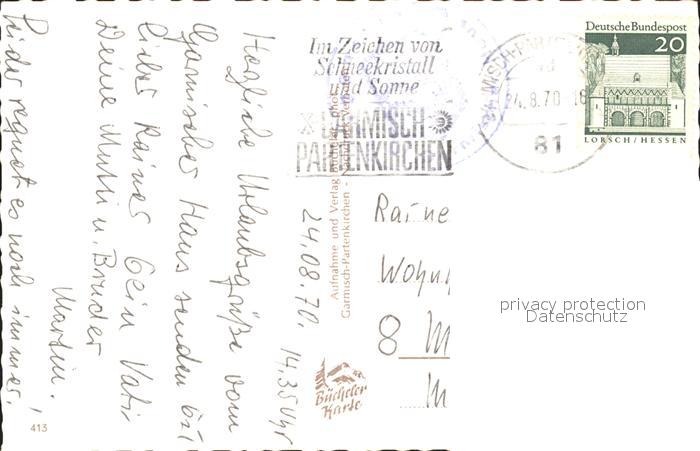 24.08.70. 14.35 Uhr
Herzliche Urlaubsgrüße vom
Garmischer Haus senden Dir
lieber Rainer Dein Vati
Deine Mutti u. Bruder
Martin.
Leider regnet es noch immer!
413
Im Zeichen von
Schneekristall
und Sonne
GARMISCH
PARTENKIRCHEN
24.8.70
81
Deutsche Bundespost
20
LORSCH / HESSEN
Aufnahme und Verlag Bücheler
Garmisch-Partenkirchen - Nachdruck verboten
Bücheler
Karte
Raine
Wohn
8 M
M
privacy protection
Datenschutz